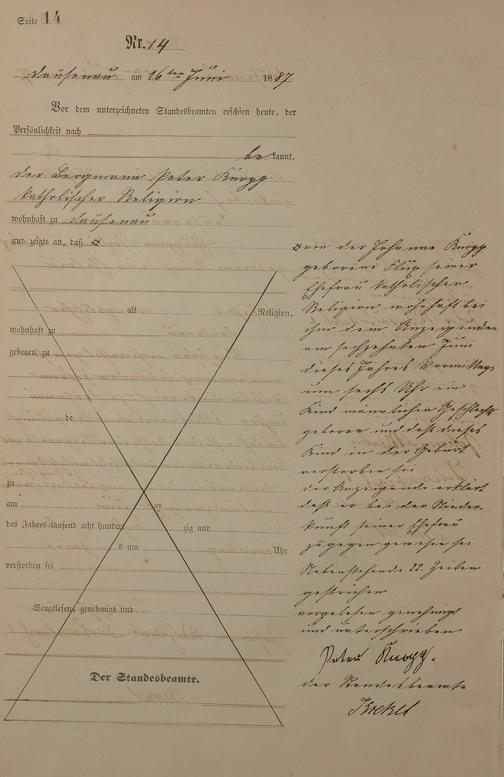 Seite 14
Nr. 14
Dausenau am 16ten Juni 1887
Vor dem unterzeichneten Standesbeamten erschien heute, der
Persönlichkeit nach
bekannt,
der Bergmann Peter Knopp
katholischer Religion
wohnhaft zu Dausenau
und zeigte an, daß
von der Johanne Knopp
geborene seiner
Ehefrau katholischer
Religion wohnhaft bei
ihm dem Anzeigenden
am sechzehnten Juni
dieses Jahres Vormittags
um sechs Uhr ein
Kind männlichen Geschlechts
geboren und daß dieses
Kind in der Geburt
verstorben sei
der Anzeigende erklärt
daß er bei der Nieder-
kunft seiner Ehefrau
zugegen gewesen sei
Nebenstehende 22 Zeilen
gestrichen
vorgelesen genehmigt
und unterschrieben
Peter Knopp.
der Standesbeamte
alt Religion,
wohnhaft zu
geboren zu
de
zu
am ten
des Jahres tausend acht hundert zig und
s um Uhr
verstorben sei
Vorgelesen, genehmigt und
Der Standesbeamte.